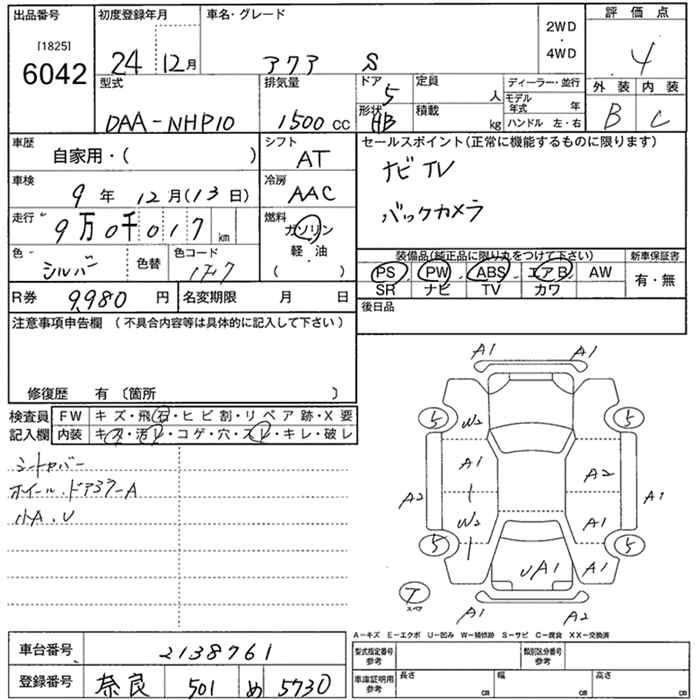 出品番号 初度登録年月 車名・グレード 評価点
[1825] 2WD
6042 24 12月 アクア S 4WD 4
型式 排気量 ドア 定員 ディーラー・並行 外装 内装
5 人 モデル年式 年
DAA-NHP10 1500 CC 形状 HB 積載 kg ハンドル 左・右 B C
車歴 シフト セールスポイント(正常に機能するものに限ります)
自家用・( ) AT ナビ TV
車検 9年 12月(13日) 冷房 AAC
走行 9万0千017 km 燃料 ガソリン バックカメラ
軽・油
( )
色 シルバー 色替 色コード 1F7 装備品(純正品に限り丸をつけて下さい) 新車保証書
PS PW ABS エアB AW 有・無
SR ナビ TV カワ
R券 9,980円 名変期限 月 日 後日品
注意事項申告欄 (不具合内容等は具体的に記入して下さい)
修復歴 有 〔箇所 〕
検査員 FW キズ・飛石・ヒビ割・リペア跡・X要
記入欄 内装 キズ・汚レ・コゲ・穴・スレ・キレ・破レ
シートカバー
ホイール・ドアミラーA
小A.U
A1 A1
5 5
W2
A1 A2
A2 A1
W2 A1
5 5
UA1 A1
T
スペア
A1 A2
A-キズ E-エクボ U-凹み W-補修跡 S-サビ C-腐食 XX-交換済
車台番号 2138761 型式指定番号 参考 類別区分番号 参考
登録番号 奈良 501 め 5730 車庫証明用 参考 長さ cm 幅 cm 高さ cm